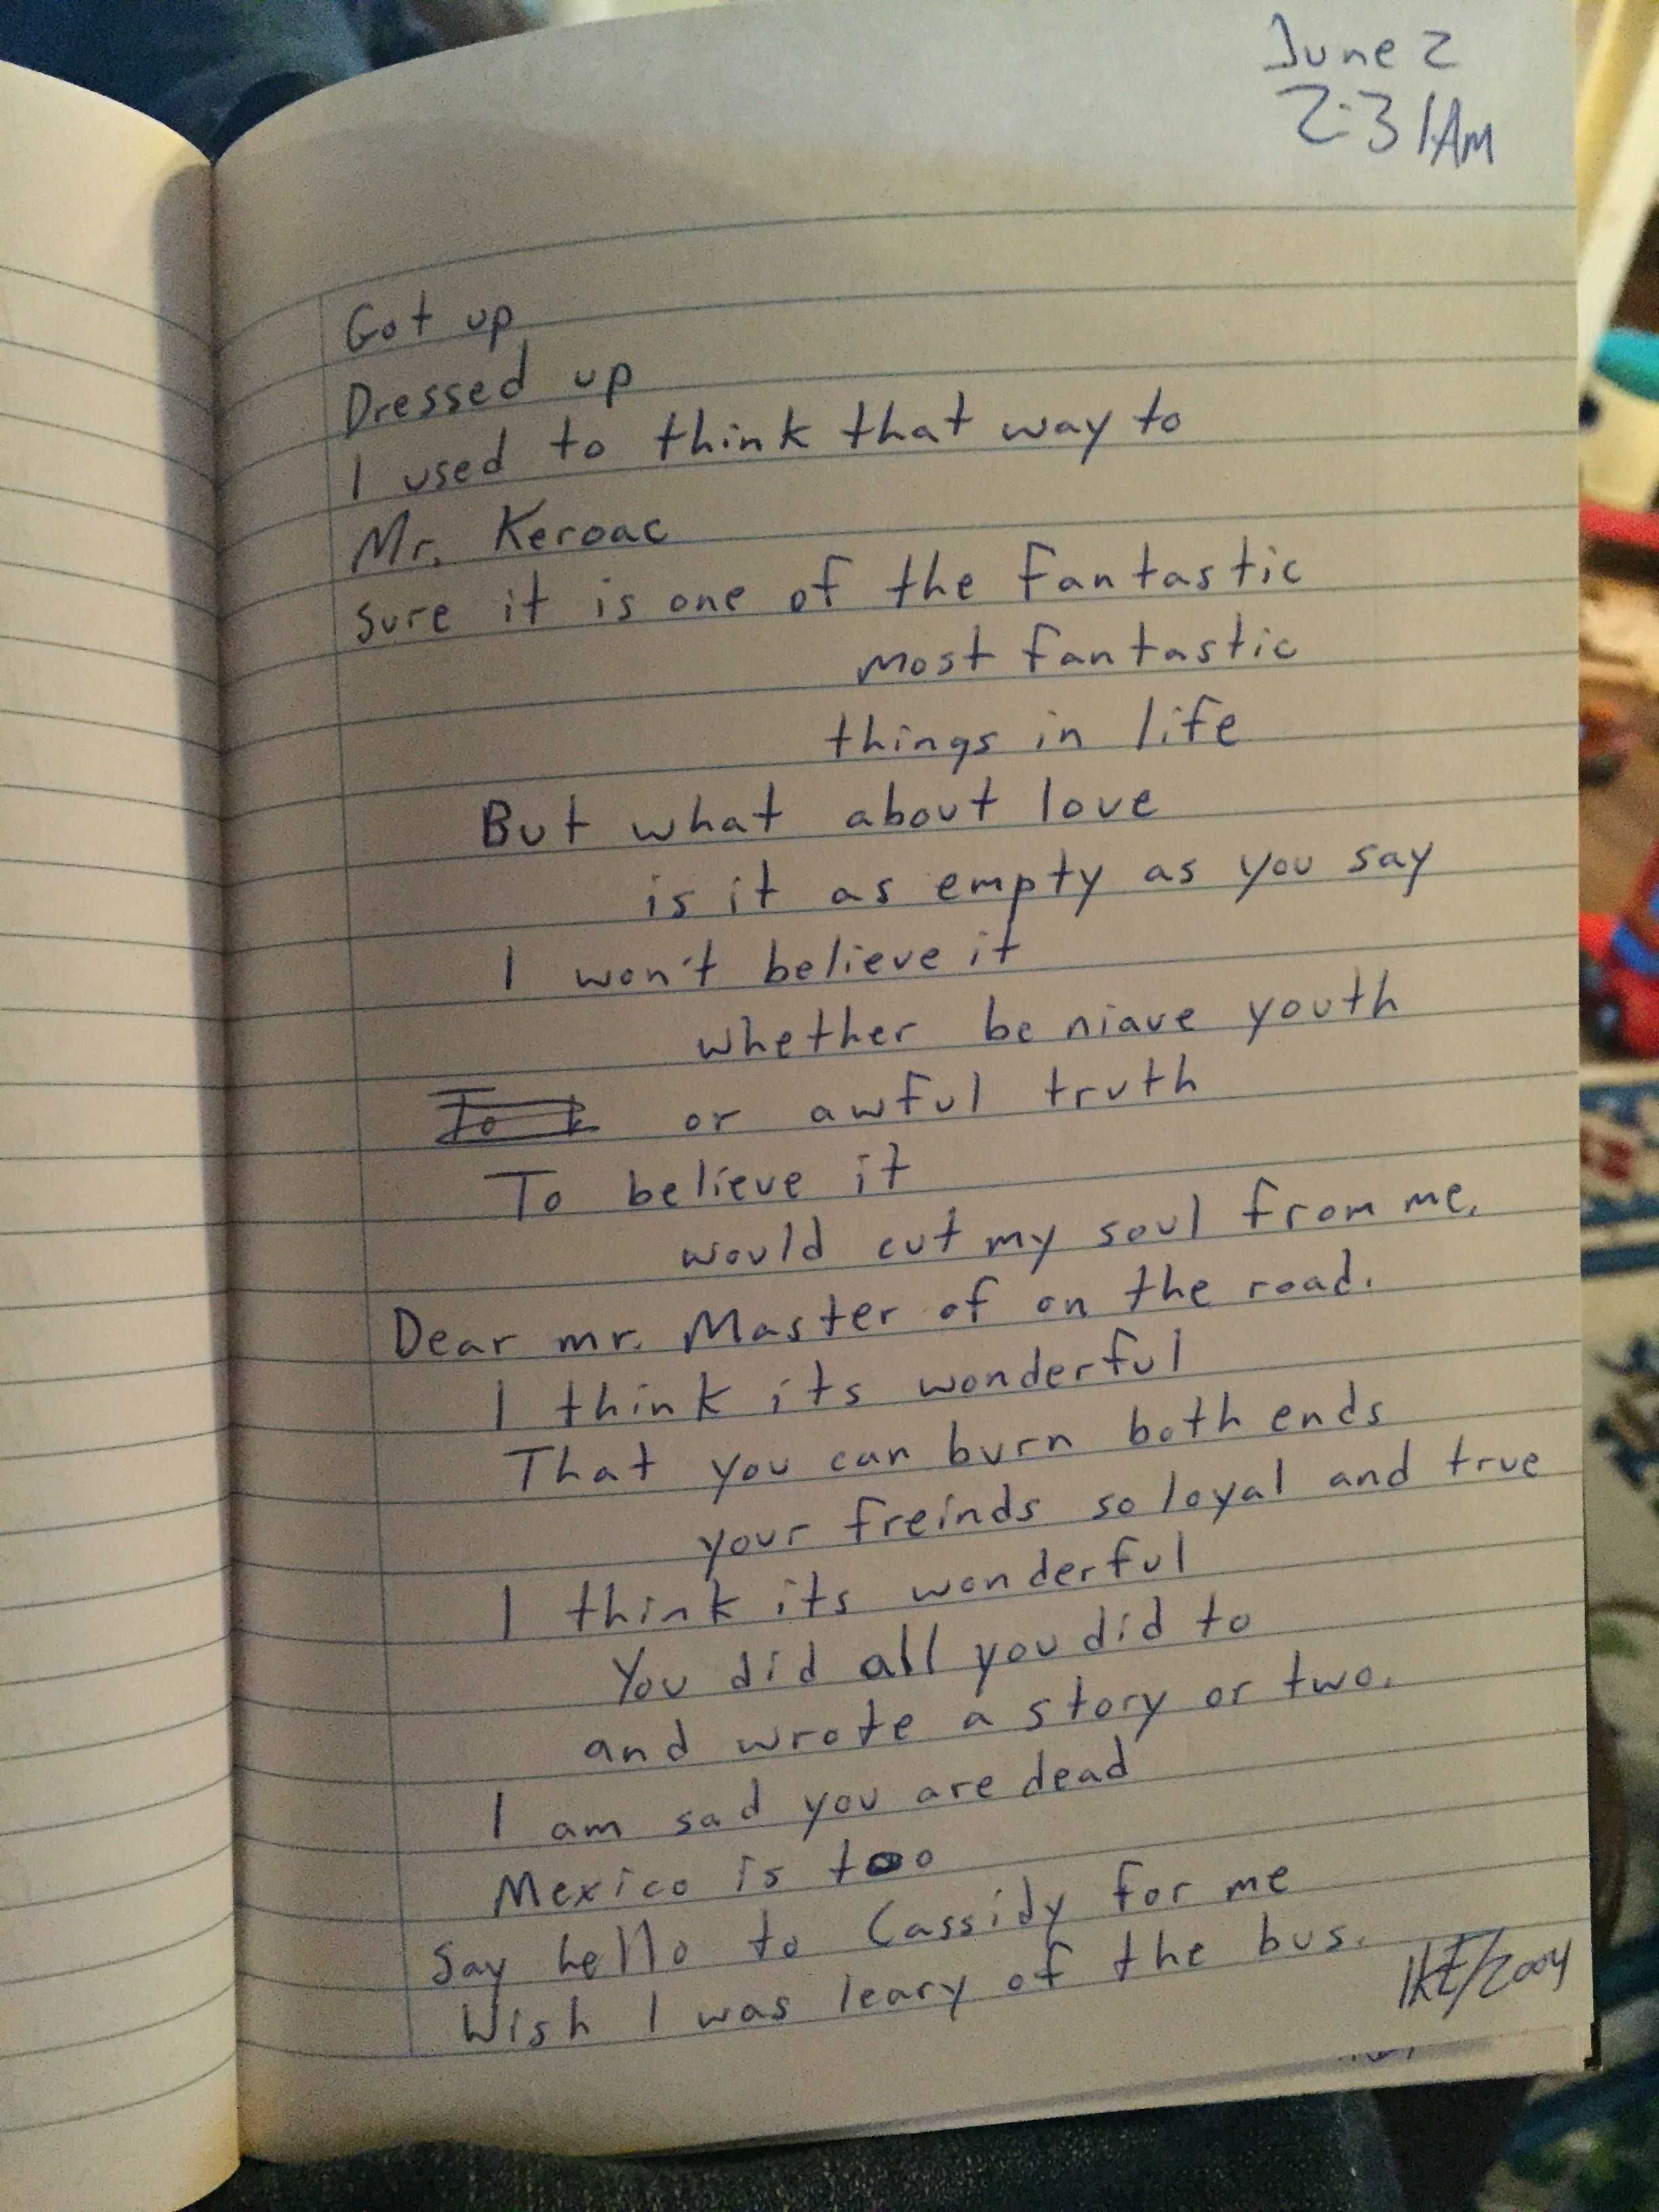 June 2
2:31AM
Got up
Dressed up
I used to think that way to
Mr. Keroac
sure it is one of the fantastic
most fantastic
things in life
But what about love
is it as empty as you say
I won't believe it
whether be niave youth
or awful truth
To believe it
would cut my soul from me.
Dear mr. Master of on the road.
I think its wonderful
That you can burn both ends
your freinds so loyal and true
I think its wonderful
You did all you did to
and wrote a story or two.
I am sad you are dead
Mexico is too
Say hello to Cassidy for me
Wish I was leary of the bus.
/2004